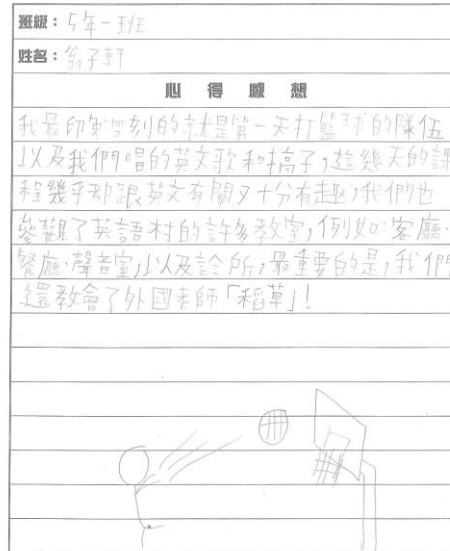 班級：5年一班
姓名：翁子軒
心得感想
我最印象深刻的就是第一天打籃球的隊伍
以及我們唱的英文歌和搞子，這幾天的課
程幾乎都跟英文有關又十分有趣，我們也
參觀了英語村的許多教室，例如：客廳、
餐廳、聲音室，以及診所，最重要的是，我們
還教會了外國老師「稻草」！